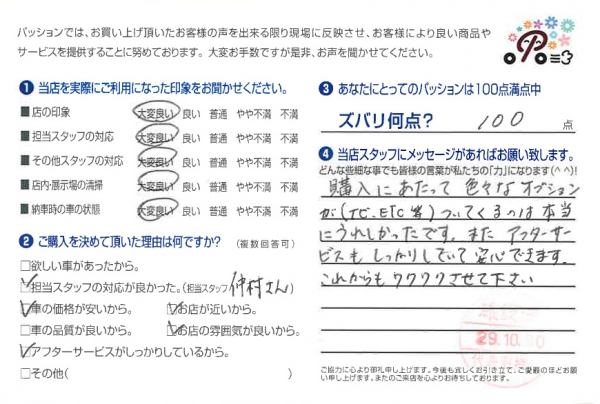 パッションでは、お買い上げ頂いたお客様の声を出来る限り現場に反映させ、お客様により良い商品や
サービスを提供することに努めております。 大変お手数ですが是非、お声を聞かせてください。
1 当店を実際にご利用になった印象をお聞かせください。
■店の印象 大変良い 良い 普通 やや不満 不満
■担当スタッフの対応 大変良い 良い 普通 やや不満 不満
■その他スタッフの対応 大変良い 良い 普通 やや不満 不満
■店内・展示場の清掃 大変良い 良い 普通 やや不満 不満
■納車時の車の状態 大変良い 良い 普通 やや不満 不満
2 ご購入を決めて頂いた理由は何ですか? (複数回答可)
□欲しい車があったから。
□担当スタッフの対応が良かった。(担当スタッフ 仲村さん)
□車の価格が安いから。 □お店が近いから。
□車の品質が良いから。 □お店の雰囲気が良いから。
□アフターサービスがしっかりしているから。
□その他( )
3 あなたにとってのパッションは100点満点中
ズバリ何点? 100 点
4 当店スタッフにメッセージがあればお願い致します。
どんな些細な事でも皆様の言葉が私たちの「力」になります(^^)!
購入にあたって色々なオプション
が(ナビ、ETC等)ついてくるのは本当
にうれしかったです。また アフターサー
ビスも しっかりしていて安心できます。
これからも ワクワクさせて下さい
29.10.
ご協力に心より御礼申し上げます。今後も宜しくお引き立て、ご愛顧のほどお願
い申し上げます。またのご来店を心よりお待ちしております。